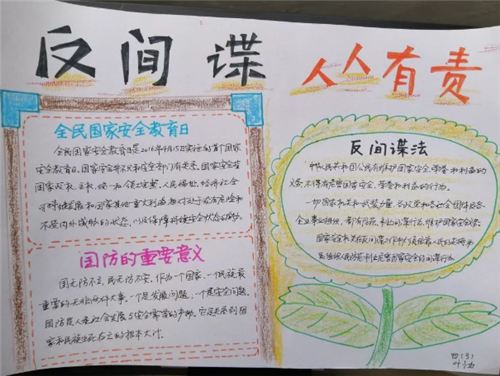 反间谍 人人有责
全民国家安全教育日
全民国家安全教育日是2016年4月15日实施的首个国家
安全教育日。国家安全
国家政权、主权、统一和领土完整、人民福祉、经济社会
可持续发展和国家其他重大利益相对处于没有危险和
不受内外威胁的状态,以及保障持续安全状态的能力。
国防的重要意义
国无防不立,民无防不安。作为一个国家、一个民族最
重要的无非两件大事,一个是发展问题,一个是安全问题。
国防是人类社会发展与安全需要的产物。它是关系到国
家和民族生死存亡的根本大计。
反间谍法
中华人民共和国公民有维护国家安全、荣誉和利益的
义务,不得有危害国家安全、荣誉和利益的行为。
一切国家机关和武装力量、各政党和各社会团体及各
企业事业组织,都有防范、制止间谍行为,维护国家安全
国家安全机关在反间谍工作中必须依靠人民的支持
四(3)